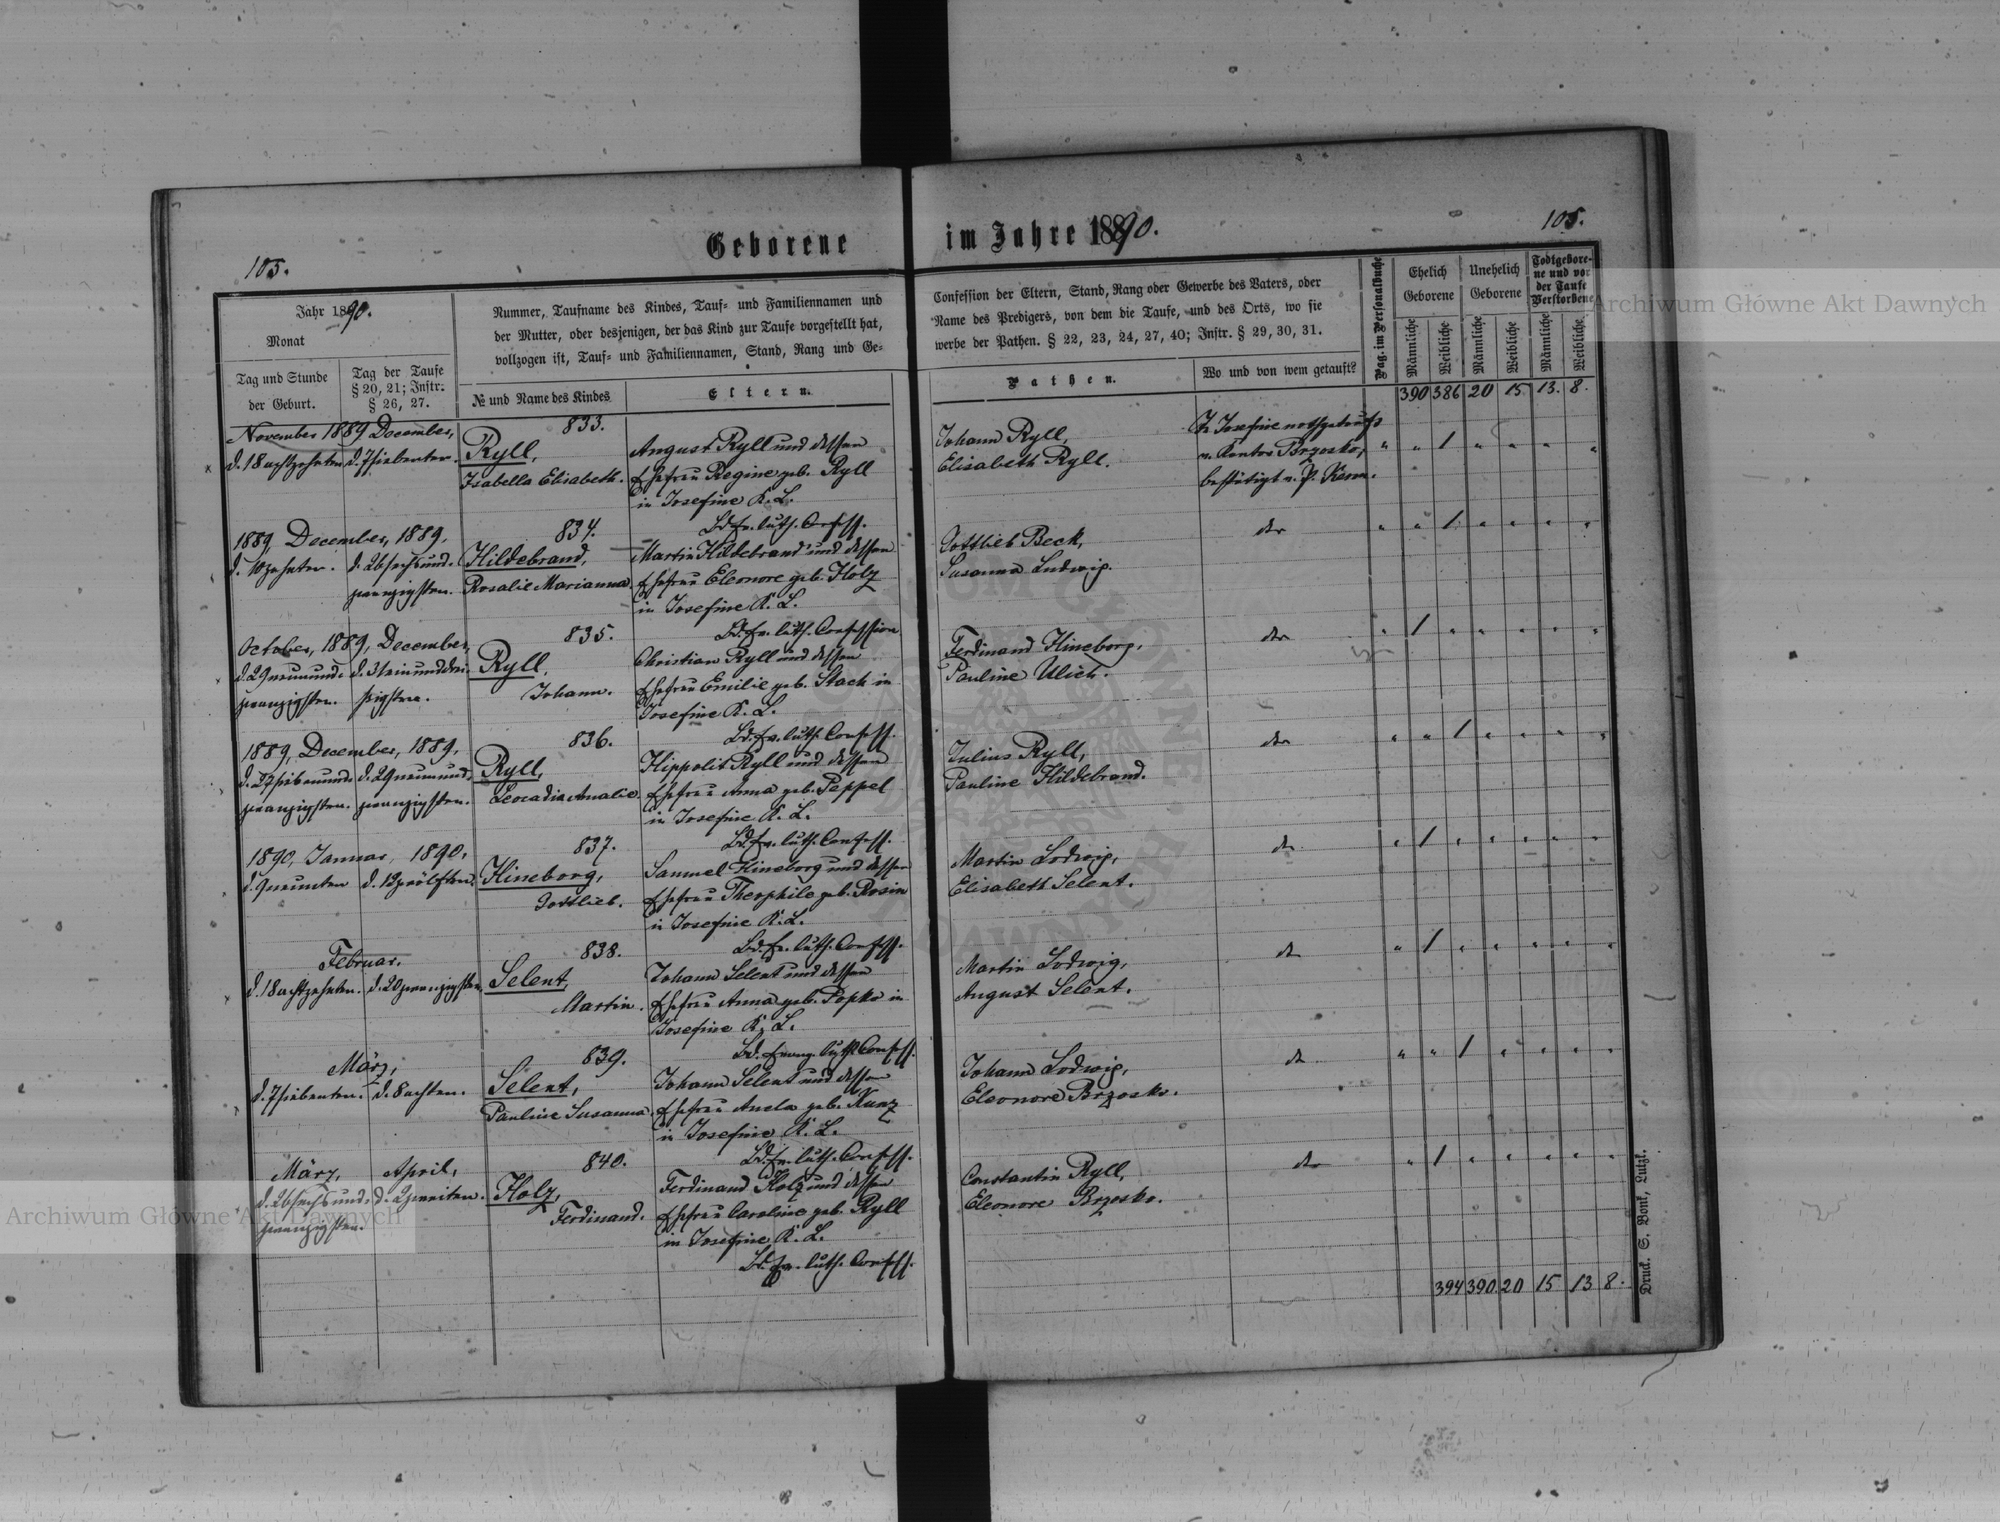 Geborene im Jahre 1890.
105.
105.
Jahr 1890.
Monat
Tag und Stunde
der Geburt.
Tag der Taufe
§ 20, 21; Instr.
§ 26, 27.
Nummer, Taufname des Kindes, Tauf- und Familiennamen und
der Mutter, oder desjenigen, der das Kind zur Taufe vorgestellt hat,
vollzogen ist, Tauf- und Familiennamen, Stand, Rang und Ge-
№ und Name des Kindes
Eltern.
Confession der Eltern, Stand, Rang oder Gewerbe des Vaters, oder
Name des Predigers, von dem die Taufe, und des Orts, wo sie
werbe der Pathen. § 22, 23, 24, 27, 40; Instr. § 29, 30, 31.
Pathen.
Wo und von wem getauft?
Pag. im Personalbuche
Ehelich
Geborene
Unehelich
Geborene
Todtgebore-
ne und vor
der Taufe
Verstorbene
Männliche
Weibliche
Männliche
Weibliche
Männliche
Weibliche
390 386 20 15 13. 8.
November 1889 December,
d. 18 achtzehnten d. 7 siebenten.
833.
Ryll,
Isabella Elisabeth.
August Ryll und dessen
Ehefrau Regine geb. Ryll
in Josefine K. L.
Bd. ev. luth. Confess.
Johann Ryll,
Elisabeth Ryll.
Zu Josefine nothgetauft
v. Kantor Brzosko,
bestätigt v. P.
" " 1 " " " "
1889, December, 1889,
d. 10 zehnten. d. 26 sechsund-
zwanzigsten.
834.
Hildebrand,
Rosalie Marianna
Martin Hildebrand und dessen
Ehefrau Eleonore geb. Holz
in Josefine K. L.
Bd. ev. luth. Confession
Gottlieb Beck,
Susanna Ludwig.
dto
" " 1 " " " "
October, 1889, December,
d. 29 neunund- d. 31 einunddrei-
zwanzigsten. ßigsten.
835.
Ryll,
Johann.
Christian Ryll und dessen
Ehefrau Emilie geb. Stach in
Josefine K. L.
Bd. ev. luth. Confess.
Ferdinand Hineborg,
Pauline Ulich.
dto
" 1 " " " " "
1889, December, 1889,
d. 27 siebenund- d. 29 neunund-
zwanzigsten. zwanzigsten.
836.
Ryll,
Leocadia Amalie.
Hippolit Ryll und dessen
Ehefrau Anna geb. Peppel
in Josefine K. L.
Bd. ev. luth. Confess.
Julius Ryll,
Pauline Hildebrand.
dto
" " 1 " " " "
1890, Januar, 1890,
d. 9 neunten d. 12 zwölften.
837.
Hineborg,
Gottlieb.
Samuel Hineborg und dessen
Ehefrau Theophile geb. Rosin
in Josefine K. L.
Bd. ev. luth. Confess.
Martin Lodwig,
Elisabeth Selent.
dto
" 1 " " " " "
Februar.
d. 18 achtzehnten. d. 20 zwanzigsten.
838.
Selent,
Martin.
Johann Selent und dessen
Ehefrau Anna geb. Popko in
Josefine K. L.
Bd. evang. luth. Confess.
Martin Lodwig,
August Selent.
dto
" 1 " " " " "
März,
d. 7 siebenten. d. 8 achten.
839.
Selent,
Pauline Susanna.
Johann Selent und dessen
Ehefrau Anela geb. Kunz
in Josefine K. L.
Bd. ev. luth. Confess.
Johann Lodwig,
Eleonore Brzosko.
dto
" " 1 " " " "
März, April,
d. 26 sechsund- d. 2 zweiten.
zwanzigsten.
840.
Holz,
Ferdinand.
Ferdinand Holz und dessen
Ehefrau Caroline geb. Ryll
in Josefine K. L.
Bd. ev. luth. Confess.
Constantin Ryll,
Eleonore Brzosko.
dto
" 1 " " " " "
394 390 20 15 13 8.
Druck. S. Bonk, Lutzk.
Archiwum Główne Akt Dawnych
Archiwum Główne Akt Dawnych